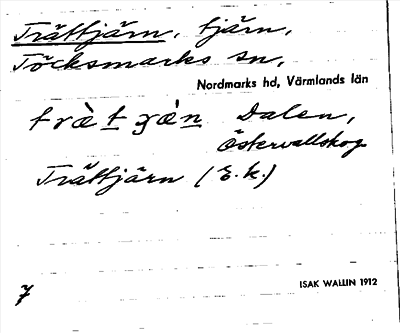 Trättjärn, tjärn,
Töcksmarks sn,
Nordmarks hd, Värmlands län
Dalen,
Östervallskog
Trättjärn (E.k.)
7
ISAK WALLIN 1912